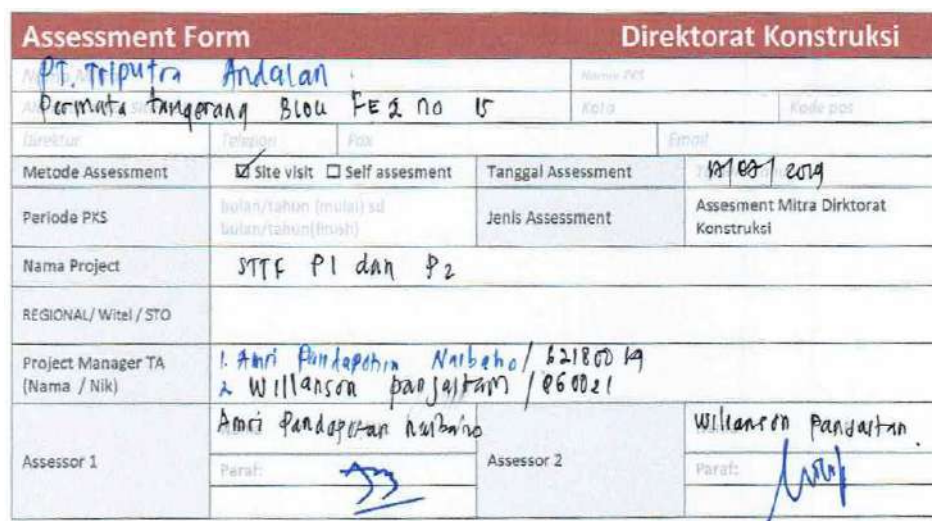 Assessment Form Direktorat Konstruksi
PT. Triputra Andalan Nama PKS
Permata tangerang Blou FE 2 no 15 Kota Kode pos
Direktur Telepon Fax Email
Metode Assessment Site visit Self assesment Tanggal Assessment 2019
Periode PKS bulan/tahun (mulai) sd bulan/tahun(finish) Jenis Assessment Assesment Mitra Dirktorat Konstruksi
Nama Project STTF P1 dan P2
REGIONAL/ Witel / STO
Project Manager TA (Nama / Nik) 1. Amri Pandapotan Naibaho/
2 Willanson panjaitan / 860021
Assessor 1 Amri Pandapotan naibaho Assessor 2 Wilianson Panjaitan
Paraf: Paraf: